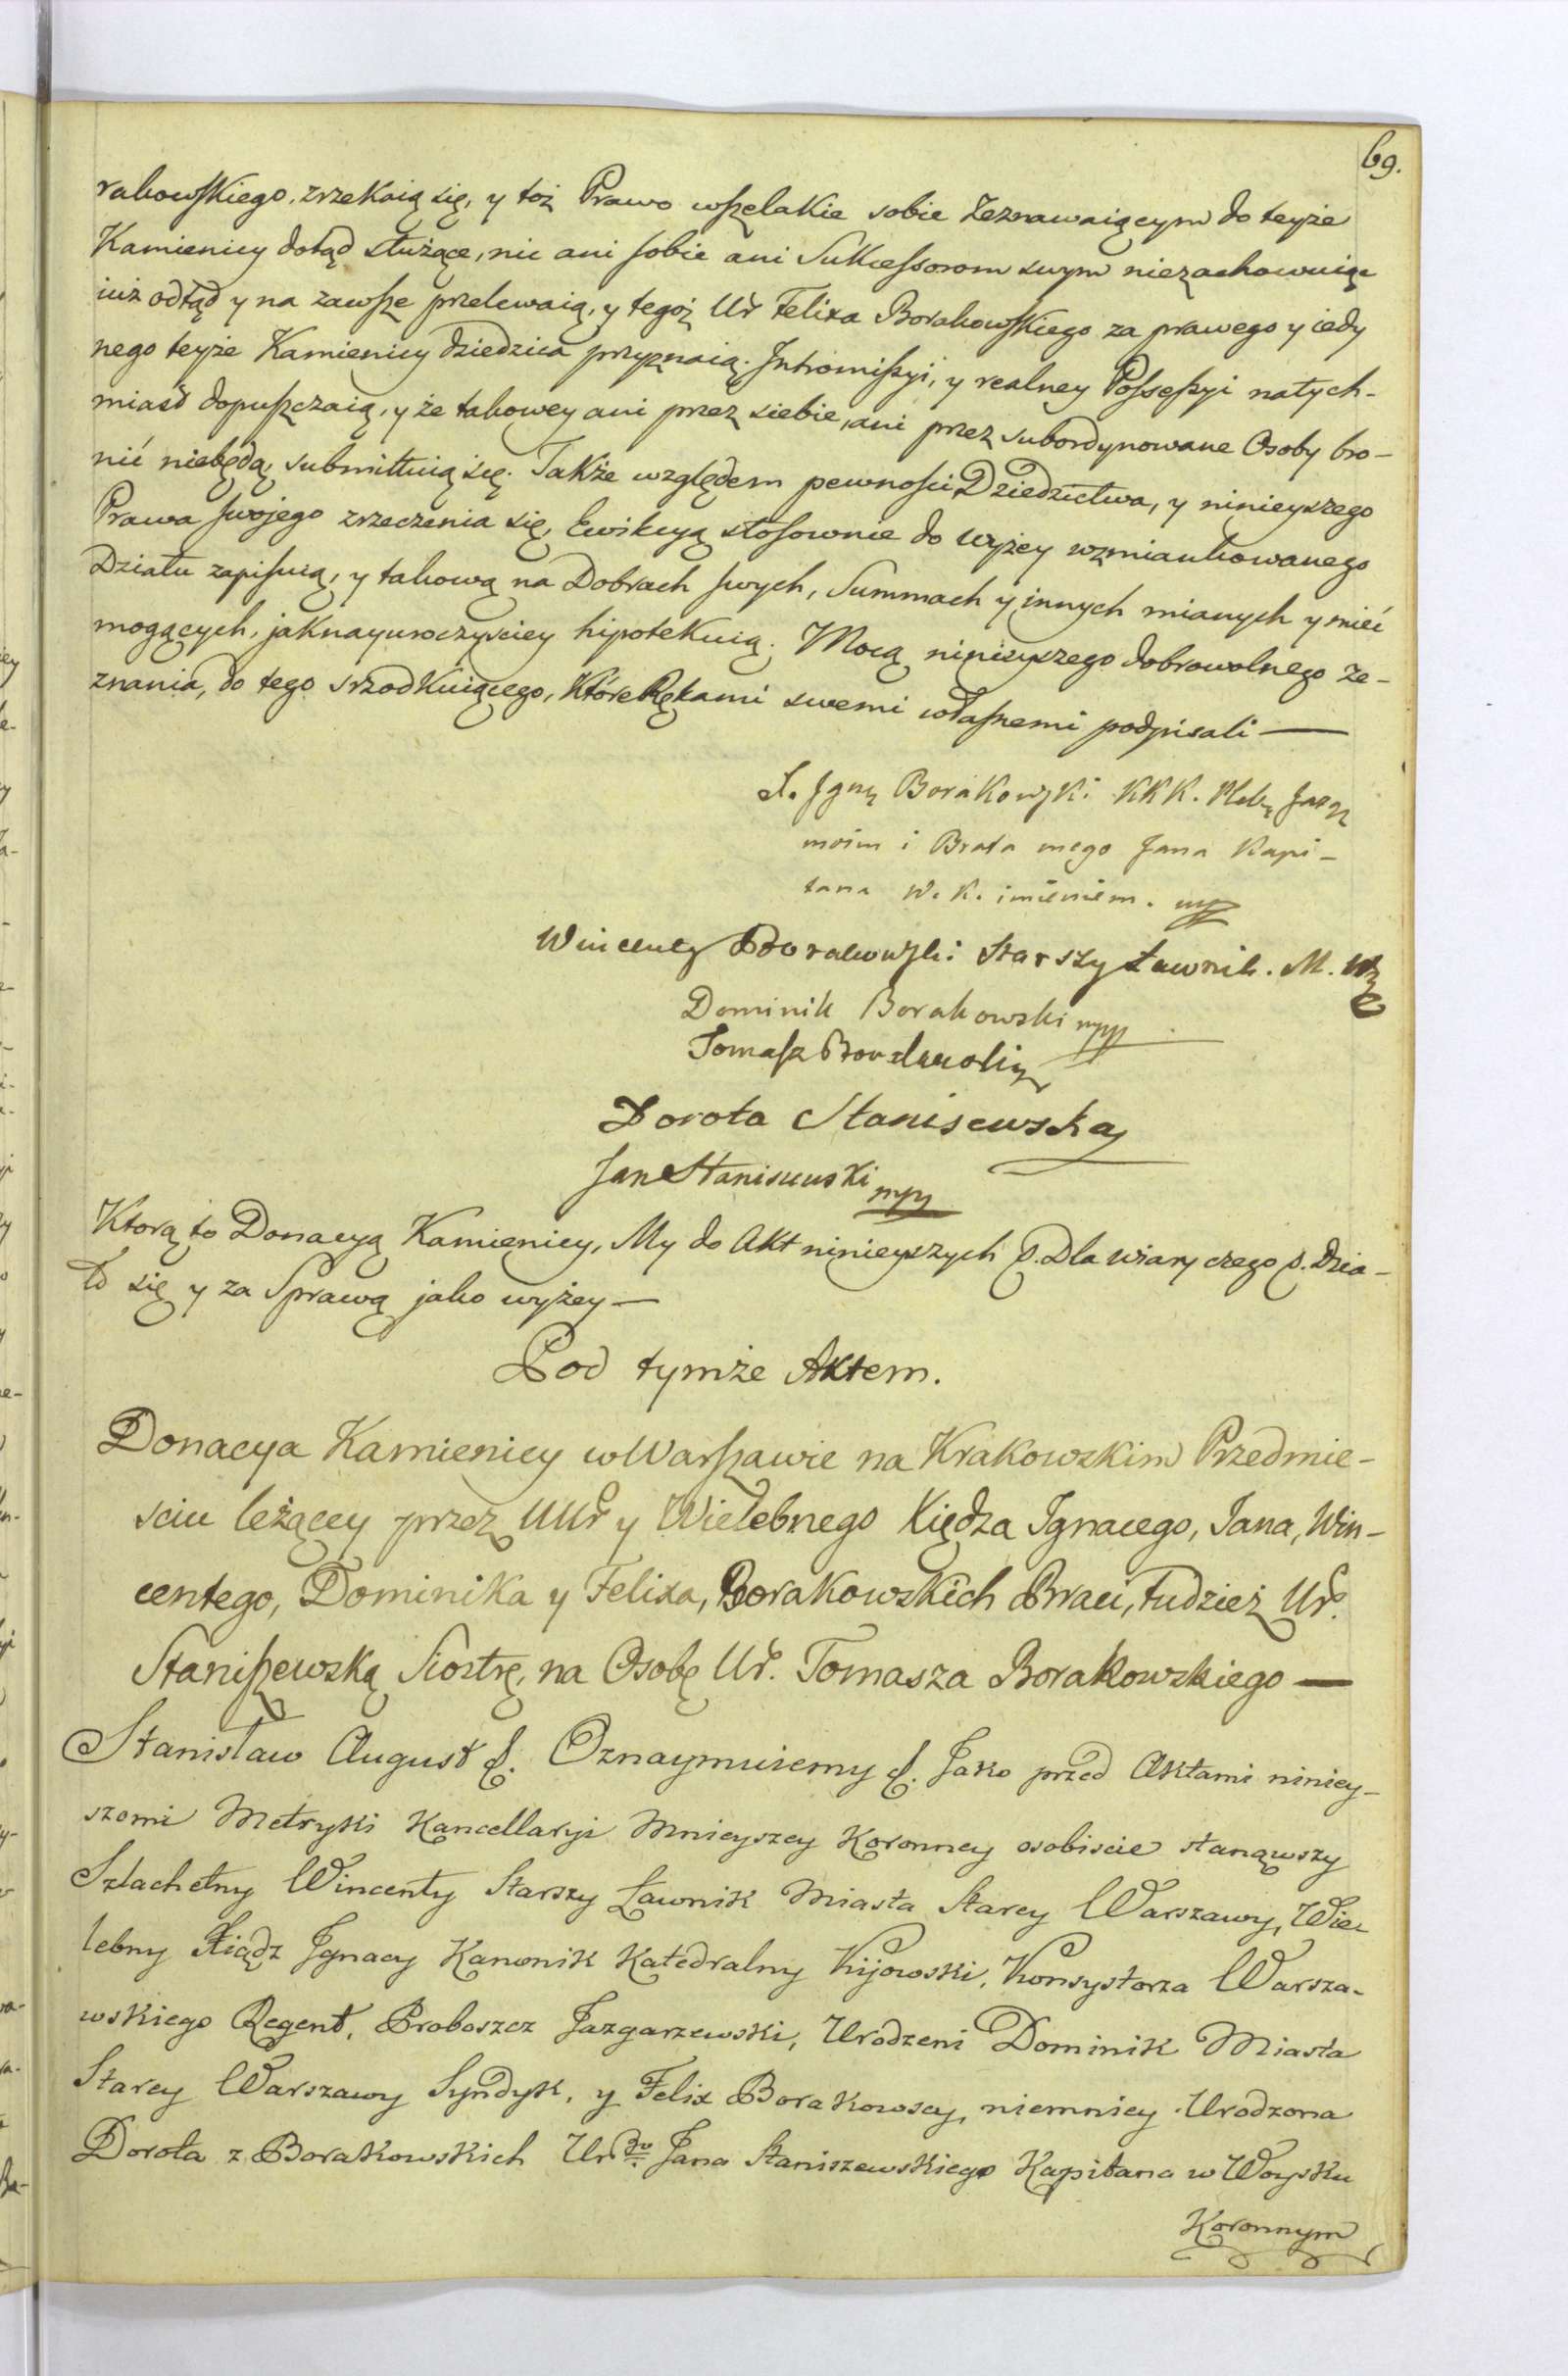 69.
rakowskiego, zrzekaią się, y toż Prawo wszelakie sobie Zeznawaiącym do teyże
Kamienicy dotąd służące, nic ani sobie ani Sukcessorom swym niezachowuiąc
iuż odtąd y na zawsze przelewaią, y tegoż Ur Felixa Borakowskiego za prawego y iedy
nego teyże Kamienicy dziedzica przyznaią. Intromissyi, y realney Possessyi natych-
miast dopuszczaią, y że takowey ani przez siebie, ani przez subordynowane Osoby bro-
nić niebędą, submittuią się. Także względem pewności Dziedzictwa, y ninieyszego
Prawa swojego zrzeczenia się, Ewikcyą stosownie do wyżey wzmiankowanego
Działu zapisuią, y takową na Dobrach swych, Summach y innych mianych y mieć
mogących, jaknayuroczyściey hipotekuią. Mocą ninieyszego dobrowolnego Ze-
znania, do tego srzodkuiącego, które Rękami swemi własnemi podpisali —
X. Ignỹ Borakowski KKK.
moim i Brata mego Jana Kapi-
tana W. K. imieniem. mp
Wincenty Borakowski Starszy Ławnik. M.
Dominik Borakowski mpp
Tomasz Borakowski
Dorota Staniszewska
Jan Staniszewski mpp
Ktorą to Donacyą Kamienicy, My do Akt ninieyszych &. Dla wiary czego &. Dzia-
ło się y za Sprawą jako wyżey —
Pod tymże Aktem.
Donacya Kamienicy w Warszawie na Krakowskim Przedmie-
sciu leżącey przez UUr y Wielebnego Xiędza Ignacego, Jana, Win-
centego, Dominika y Felixa, Borakowskich Braci, tudzież Ur.
Staniszewską Siostrę, na Osobę Ur. Tomasza Borakowskiego —
Stanisław August &. Oznaymuiemy &. Jako przed Aktami niniey-
szemi Metryki Kancellaryi Mnieyszey Koronney osobiscie stanąwszy
Szlachetny Wincenty Starszy Ławnik Miasta Starey Warszawy, Wie-
lebny Xiądz Ignacy Kanonik Katedralny Kijowski, Konsystorza Warsza-
wskiego Regent, Proboszcz Jazgarzewski, Urodzeni Dominik Miasta
Starey Warszawy Syndyk, y Felix Borakowscy, niemniey Urodzona
Dorota z Borakowskich Urdgo. Jana Staniszewskiego Kapitana w Woysku
Koronnym